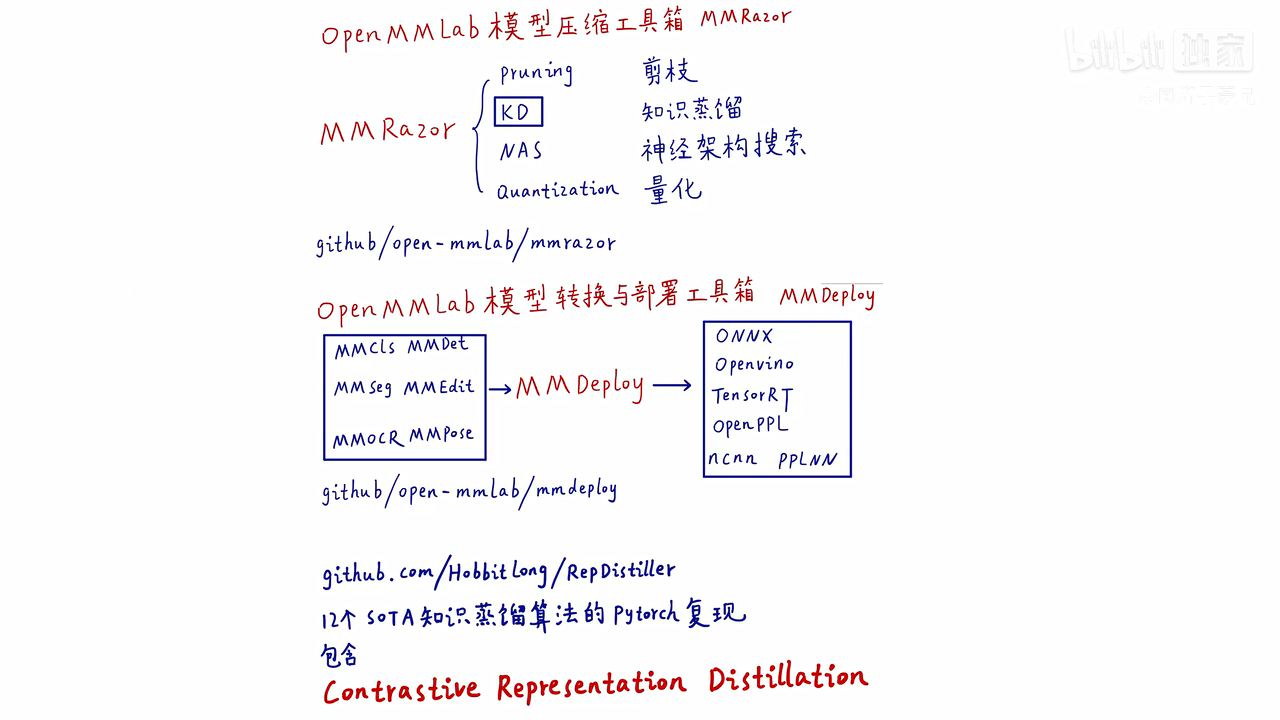 OpenMMLab 模型压缩工具箱 MMRazor
bilibili 独家
MMRazor
pruning 剪枝
KD 知识蒸馏
NAS 神经架构搜索
Quantization 量化
github/open-mmlab/mmrazor
OpenMMLab 模型转换与部署工具箱 MMDeploy
MMCls MMDet
MMSeg MMEdit
MMOCR MMPose
MMDeploy
ONNX
Openvino
TensorRT
OpenPPL
ncnn PPLNN
github/open-mmlab/mmdeploy
github.com/HobbitLong/RepDistiller
12个 SOTA 知识蒸馏算法的 Pytorch 复现
包含
Contrastive Representation Distillation